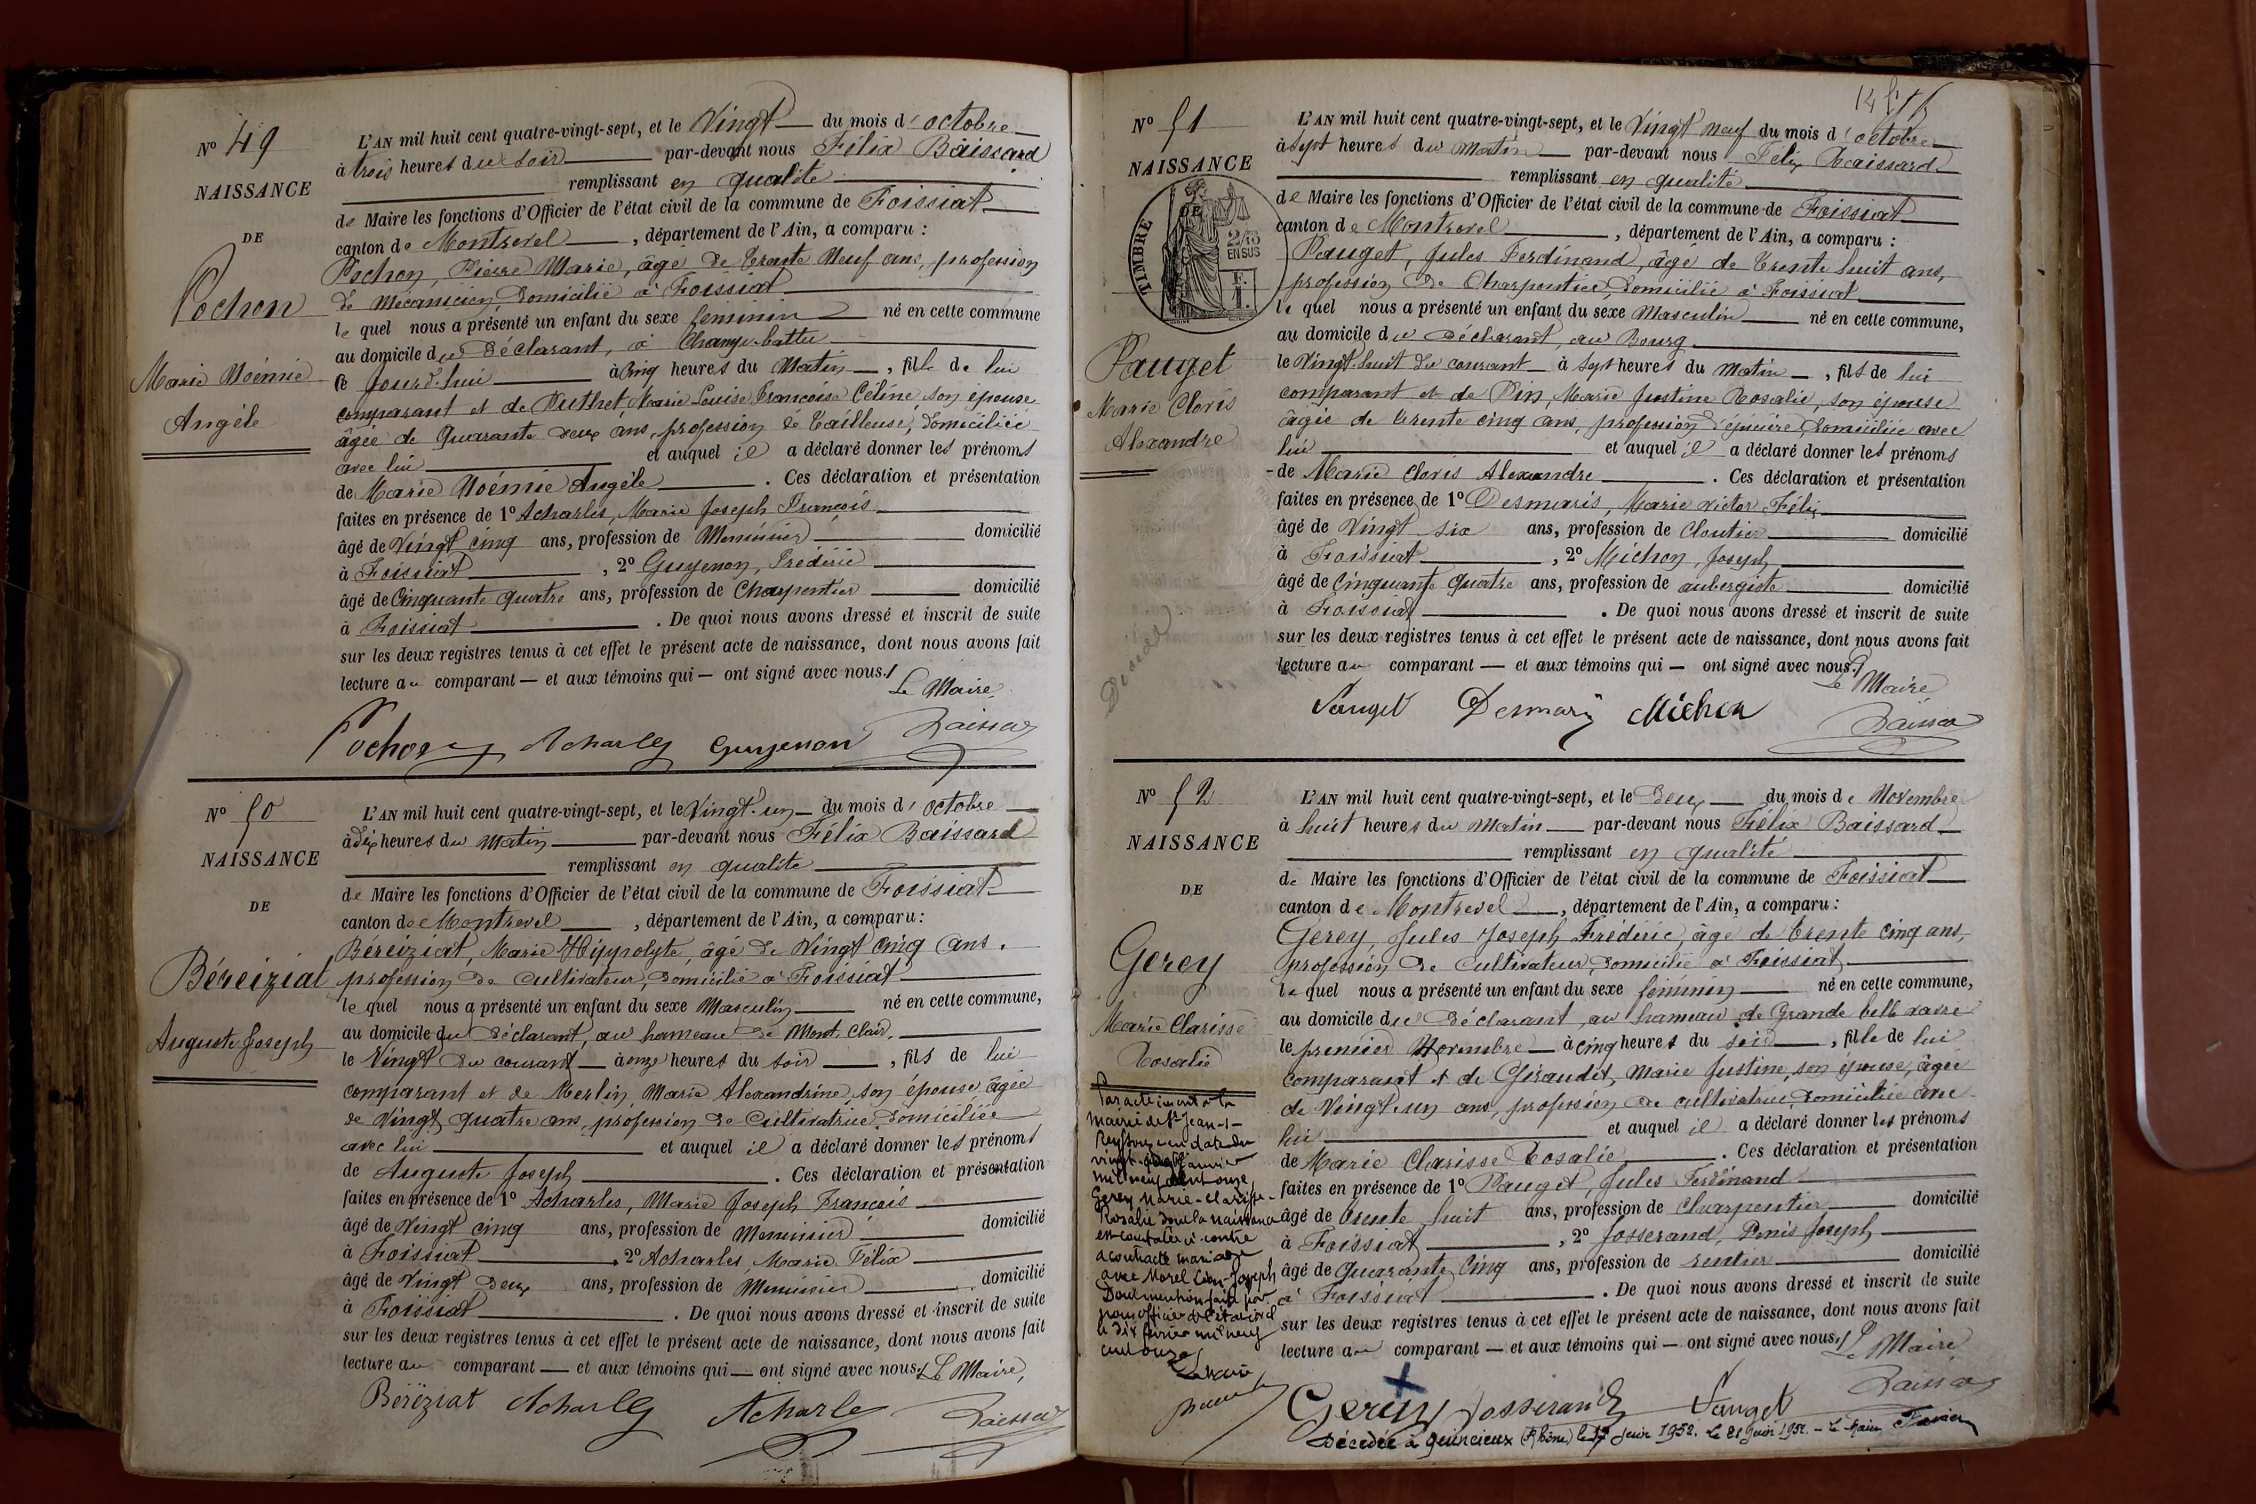 No 49
NAISSANCE
DE
Pochon
Marie Noémie
Angèle
L'AN mil huit cent quatre-vingt-sept, et le Vingt du mois d'octobre
à trois heures du soir par-devant nous Félix Baissard
remplissant en qualité
de Maire les fonctions d'Officier de l'état civil de la commune de Foissiat
canton de Montrevel, département de l'Ain, a comparu :
Pochon, Pierre Marie, âgé de trente Neuf ans, profession
de Mécanicien, domicilié à Foissiat
lequel nous a présenté un enfant du sexe féminin né en cette commune
au domicile du déclarant, à Champ-battu
ce jourd'hui à Cinq heures du Matin, fille de lui
comparant et de Puthet Marie Louise Françoise Céline son épouse
âgée de Quarante deux ans, profession de tailleuse, domiciliée
avec lui et auquel il a déclaré donner les prénoms
de Marie Noémie Angèle. Ces déclaration et présentation
faites en présence de 1º Acharles, Marie Joseph François
âgé de Vingt cinq ans, profession de Menuisier domicilié
à Foissiat, 2º Guyenon, Frédéric
âgé de Cinquante quatre ans, profession de Charpentier domicilié
à Foissiat. De quoi nous avons dressé et inscrit de suite
sur les deux registres tenus à cet effet le présent acte de naissance, dont nous avons fait
lecture au comparant — et aux témoins qui — ont signé avec nous.
Le Maire
Pochon Acharles Guyenon Baissard
No 50
NAISSANCE
DE
Béreiziat
Auguste Joseph
L'AN mil huit cent quatre-vingt-sept, et le Vingt-un du mois d'octobre
à dix heures du Matin par-devant nous Félix Baissard
remplissant en qualité
de Maire les fonctions d'Officier de l'état civil de la commune de Foissiat
canton de Montrevel, département de l'Ain, a comparu :
Béreiziat, Marie Hippolyte, âgé de Vingt cinq ans.
profession de Cultivateur, domicilié à Foissiat
lequel nous a présenté un enfant du sexe Masculin né en cette commune,
au domicile du déclarant, au hameau de Mont Clair,
le Vingt du courant à onze heures du soir, fils de lui
comparant et de Merlin Marie Alexandrine, son épouse âgée
de Vingt quatre ans, profession de Cultivatrice, domiciliée
avec lui et auquel il a déclaré donner les prénoms
de Auguste Joseph. Ces déclaration et présentation
faites en présence de 1º Acharles, Marie Joseph François
âgé de Vingt cinq ans, profession de Menuisier domicilié
à Foissiat, 2º Acharles, Marie Félix
âgé de Vingt deux ans, profession de Menuisier domicilié
à Foissiat. De quoi nous avons dressé et inscrit de suite
sur les deux registres tenus à cet effet le présent acte de naissance, dont nous avons fait
lecture au comparant — et aux témoins qui — ont signé avec nous. Le Maire,
Béréziat Acharles Acharles Baissard
No 51
NAISSANCE
DE
TIMBRE
2/10
EN SUS
Pauget
Marie Cloris
Alexandre
Décédé
L'AN mil huit cent quatre-vingt-sept, et le Vingt neuf du mois d'octobre
à sept heures du Matin par-devant nous Félix Baissard
remplissant en qualité
de Maire les fonctions d'Officier de l'état civil de la commune de Foissiat
canton de Montrevel, département de l'Ain, a comparu :
Pauget, Jules Ferdinand, âgé de trente huit ans,
profession de Charpentier, domicilié à Foissiat
lequel nous a présenté un enfant du sexe Masculin né en cette commune,
au domicile du déclarant, au Bourg
le Vingt-huit du courant à sept heures du Matin, fils de lui
comparant et de Pin, Marie Justine Rosalie, son épouse
âgée de trente cinq ans, profession d'épicière, domiciliée avec
lui et auquel il a déclaré donner les prénoms
de Marie Cloris Alexandre. Ces déclaration et présentation
faites en présence de 1º Desmaris, Marie Victor Félix
âgé de Vingt six ans, profession de Cloutier domicilié
à Foissiat, 2º Michon, Joseph
âgé de Cinquante quatre ans, profession de aubergiste domicilié
à Foissiat. De quoi nous avons dressé et inscrit de suite
sur les deux registres tenus à cet effet le présent acte de naissance, dont nous avons fait
lecture au comparant — et aux témoins qui — ont signé avec nous.
Le Maire
Pauget Desmaris Michon Baissard
No 52
NAISSANCE
DE
Gerey
Marie Clarisse
Rosalie
Par acte inscrit à la
mairie de St Jean-s-
Reyssouze en date du
vingt janvier
mil neuf cent onze,
Gerey Marie-Clarisse-
Rosalie dont la naissance
est constatée ci-contre
a contracté mariage
avec Morel Joseph
Dont mention faite par
nous officier de l'état civil
le dix février mil neuf
cent onze
Le Maire
L'AN mil huit cent quatre-vingt-sept, et le deux du mois de Novembre
à huit heures du Matin par-devant nous Félix Baissard
remplissant en qualité
de Maire les fonctions d'Officier de l'état civil de la commune de Foissiat
canton de Montrevel, département de l'Ain, a comparu :
Gerey, Jules Joseph Frédéric, âgé de trente cinq ans,
profession de Cultivateur, domicilié à Foissiat
lequel nous a présenté un enfant du sexe féminin né en cette commune,
au domicile du déclarant, au hameau de Grande belle vavre
le premier Novembre à cinq heures du soir, fille de lui
comparant et de Giraudet, Marie Justine, son épouse, âgée
de Vingt-un ans, profession de cultivatrice domiciliée avec
lui et auquel il a déclaré donner les prénoms
de Marie Clarisse Rosalie. Ces déclaration et présentation
faites en présence de 1º Pauget, Jules Ferdinand
âgé de trente huit ans, profession de Charpentier domicilié
à Foissiat, 2º Josserand, Denis Joseph
âgé de Quarante Cinq ans, profession de rentier domicilié
à Foissiat. De quoi nous avons dressé et inscrit de suite
sur les deux registres tenus à cet effet le présent acte de naissance, dont nous avons fait
lecture au comparant — et aux témoins qui — ont signé avec nous.
Le Maire
Gerey Josserand Pauget Baissard
Décédée à Quincieux (Rhône) le 17 Juin 1952. Le 21 Juin 1952. – Le Maire